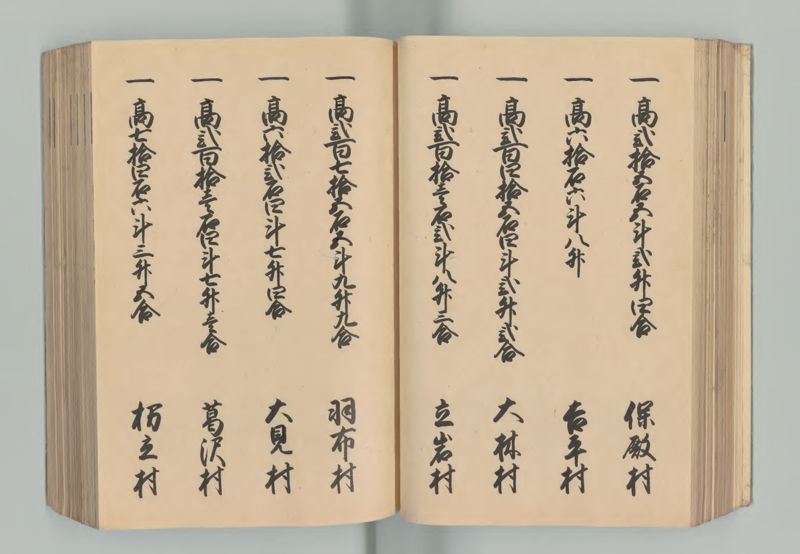 一 高弐拾五石五斗弐升四合 保殿村
一 高六拾石六斗八升 吉平村
一 高弐百四拾五石四斗弐升弐合 大林村
一 高弐百拾壱石弐斗八升三合 立岩村
一 高弐百七拾五石五斗九升九合 羽布村
一 高六拾弐石四斗七升四合 大見村
一 高弐百拾壱石四斗七升壱合 葛沢村
一 高七拾四石六斗三升五合 栃立村